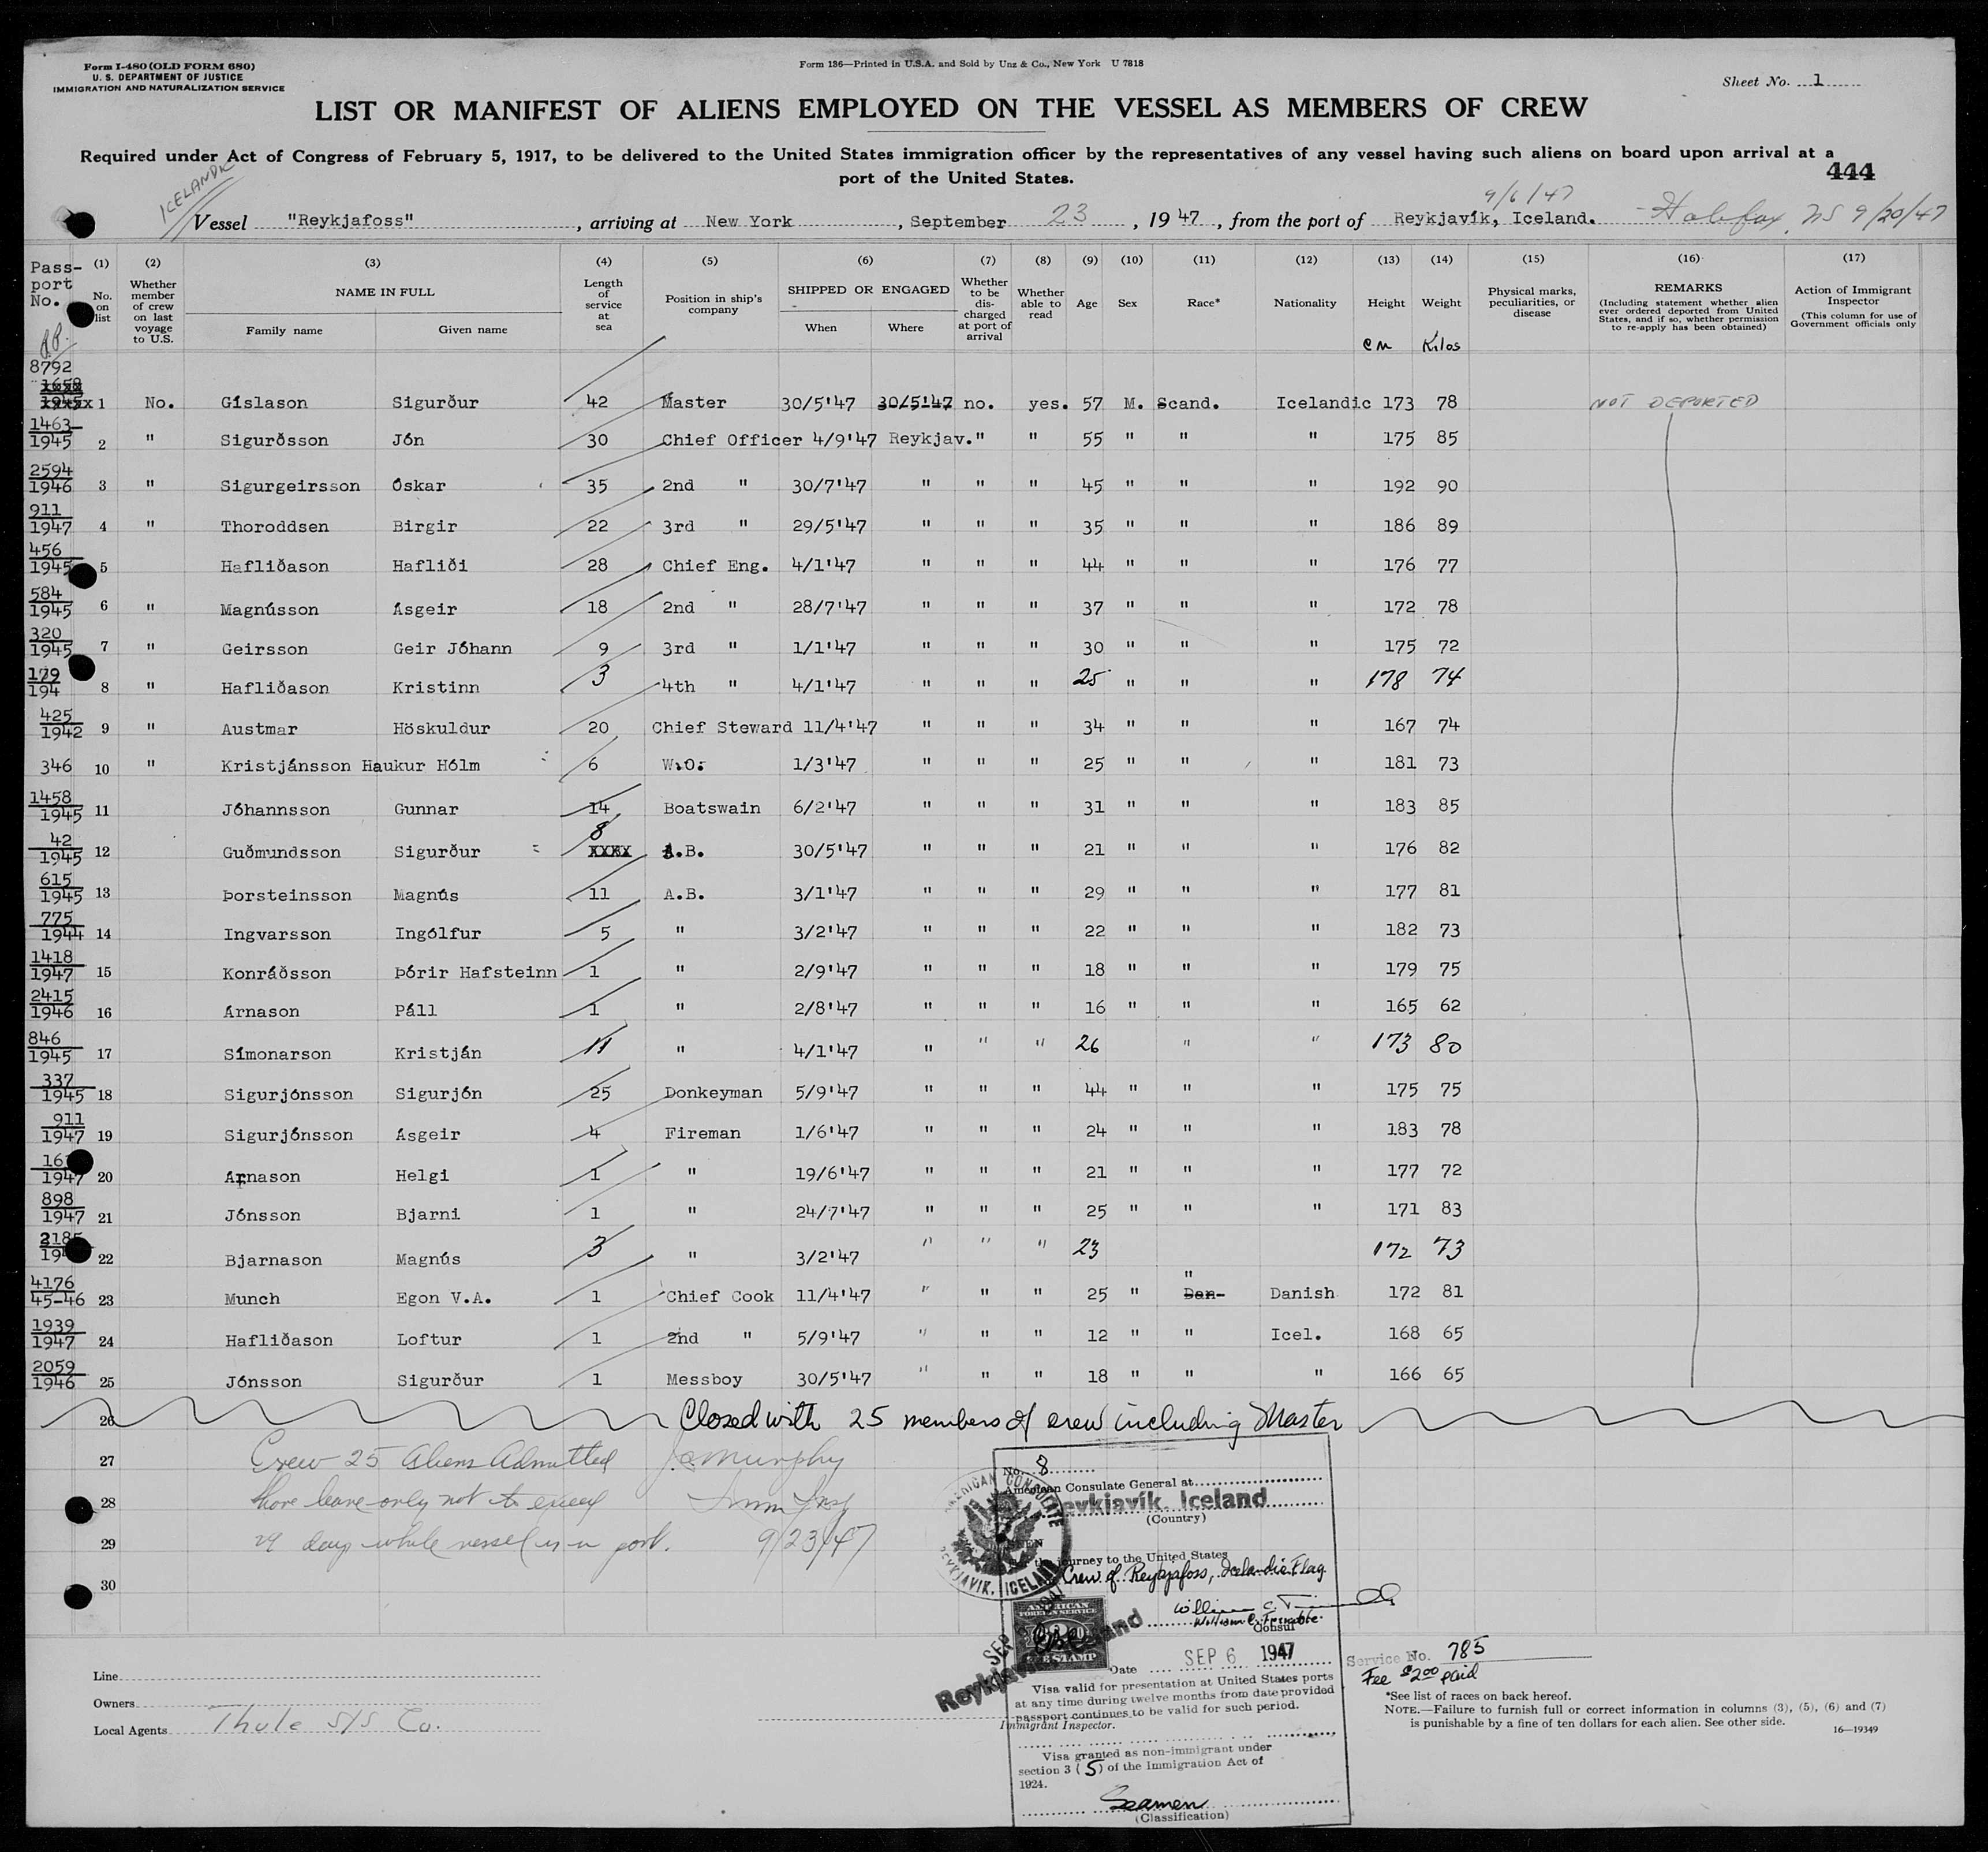 Form I-480 (OLD FORM 680)
U. S. DEPARTMENT OF JUSTICE
IMMIGRATION AND NATURALIZATION SERVICE
Form 136—Printed in U.S.A. and Sold by Unz & Co., New York U 7818
Sheet No. 1
LIST OR MANIFEST OF ALIENS EMPLOYED ON THE VESSEL AS MEMBERS OF CREW
Required under Act of Congress of February 5, 1917, to be delivered to the United States immigration officer by the representatives of any vessel having such aliens on board upon arrival at a
port of the United States.
444
ICELANDIC
9/6/47
Vessel "Reykjafoss", arriving at New York, September 23, 1947, from the port of Reykjavík, Iceland. - Halifax, NS 9/20/47
Passport No. (1) No. on list (2) Whether member of crew on last voyage to U.S. (3) NAME IN FULL Family name Given name (4) Length of service at sea (5) Position in ship's company (6) SHIPPED OR ENGAGED When Where (7) Whether to be discharged at port of arrival (8) Whether able to read (9) Age (10) Sex (11) Race* (12) Nationality (13) Height cm (14) Weight Kilos (15) Physical marks, peculiarities, or disease (16) REMARKS (Including statement whether alien ever ordered deported from United States, and if so, whether permission to re-apply has been obtained) (17) Action of Immigrant Inspector (This column for use of Government officials only
8792 1 No. Gíslason Sigurður 42 Master 30/5'47 30/5'47 no. yes. 57 M. Scand. Icelandic 173 78 NOT DEPORTED
1463 1945 2 " Sigurðsson Jón 30 Chief Officer 4/9'47 Reykjav. " " 55 " " " 175 85
2594 1946 3 " Sigurgeirsson Óskar 35 2nd " 30/7'47 " " " 45 " " " 192 90
911 1947 4 " Thoroddsen Birgir 22 3rd " 29/5'47 " " " 35 " " " 186 89
456 1945 5 Hafliðason Hafliði 28 Chief Eng. 4/1'47 " " " 44 " " " 176 77
584 1945 6 " Magnússon Ásgeir 18 2nd " 28/7'47 " " " 37 " " " 172 78
320 1945 7 " Geirsson Geir Jóhann 9 3rd " 1/1'47 " " " 30 " " " 175 72
179 194 8 " Hafliðason Kristinn 3 4th " 4/1'47 " " " 25 " " " 178 74
425 1942 9 " Austmar Höskuldur 20 Chief Steward 11/4'47 " " " 34 " " " 167 74
346 10 " Kristjánsson Haukur Hólm 6 W.O. 1/3'47 " " " 25 " " " 181 73
1458 1945 11 Jóhannsson Gunnar 14 Boatswain 6/2'47 " " " 31 " " " 183 85
42 1945 12 Guðmundsson Sigurður 8 XXXX A.B. 30/5'47 " " " 21 " " " 176 82
615 1945 13 Þorsteinsson Magnús 11 A.B. 3/1'47 " " " 29 " " " 177 81
775 1944 14 Ingvarsson Ingólfur 5 " 3/2'47 " " " 22 " " " 182 73
1418 1947 15 Konráðsson Þórir Hafsteinn 1 " 2/9'47 " " " 18 " " " 179 75
2415 1946 16 Árnason Páll 1 " 2/8'47 " " " 16 " " " 165 62
846 1945 17 Símonarson Kristján 11 " 4/1'47 " " " 26 " " 173 80
337 1945 18 Sigurjónsson Sigurjón 25 Donkeyman 5/9'47 " " " 44 " " " 175 75
911 1947 19 Sigurjónsson Ásgeir 4 Fireman 1/6'47 " " " 24 " " " 183 78
1947 20 Árnason Helgi 1 " 19/6'47 " " " 21 " " " 177 72
898 1947 21 Jónsson Bjarni 1 " 24/7'47 " " " 25 " " " 171 83
22 Bjarnason Magnús 3 " 3/2'47 " " " 23 172 73
4176 45-46 23 Munch Egon V.A. 1 Chief Cook 11/4'47 " " " 25 " " Dan- Danish 172 81
1939 1947 24 Hafliðason Loftur 1 2nd " 5/9'47 " " " 12 " " Icel. 168 65
2059 1946 25 Jónsson Sigurður 1 Messboy 30/5'47 " " " 18 " " " 166 65
26 Closed with 25 members of crew including Master
27 Crew 25 Aliens Admitted
28 shore leave only not to exceed
29 29 days while vessel is in port.
30
J.C. Murphy
Imm Insp
9/23/47
No. 8
American Consulate General at
Reykjavík, Iceland
(Country)
SEEN
For the journey to the United States
Crew of Reykjafoss, Icelandic Flag
William C. Trimble
Consul
Date SEP 6 1947
AMERICAN CONSULATE
REYKJAVIK, ICELAND
AMERICAN
FOREIGN SERVICE
FEE STAMP
Reykjavik, Iceland
Visa valid for presentation at United States ports
at any time during twelve months from date provided
passport continues to be valid for such period.
Immigrant Inspector.
Visa granted as non-immigrant under
section 3 (5) of the Immigration Act of
1924.
Seamen
(Classification)
Service No. 785
Fee $2.00 paid
Line
Owners
Local Agents Thule S/S Co.
*See list of races on back hereof.
NOTE.—Failure to furnish full or correct information in columns (3), (5), (6) and (7)
is punishable by a fine of ten dollars for each alien. See other side.
16—19349